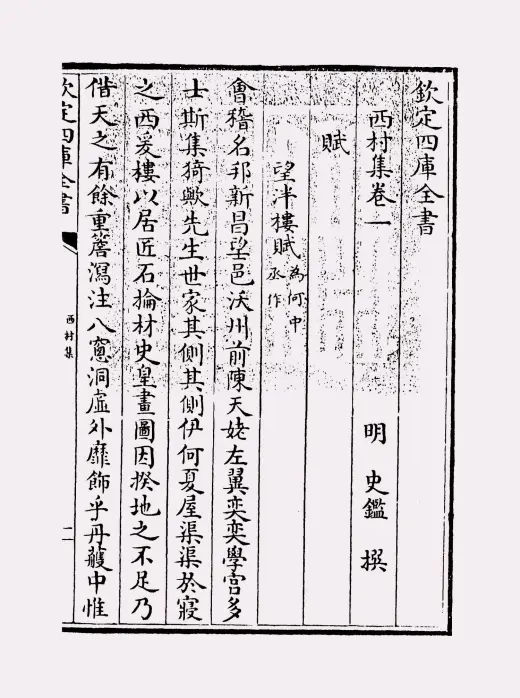 欽定四庫全書
西村集卷一
明 史鑑 撰
賦
望泮樓賦為何中丞作
會稽名邦新昌望邑沃州前陳天姥左翼奕奕學宫多
士斯集猗歟先生世家其側其側伊何夏屋渠渠於寢
之西爰樓以居匠石掄材史皇畫圖因揆地之不足乃
借天之有餘重簷瀉注八窻洞虛外靡飾乎丹雘中惟
欽定四庫全書
西村集